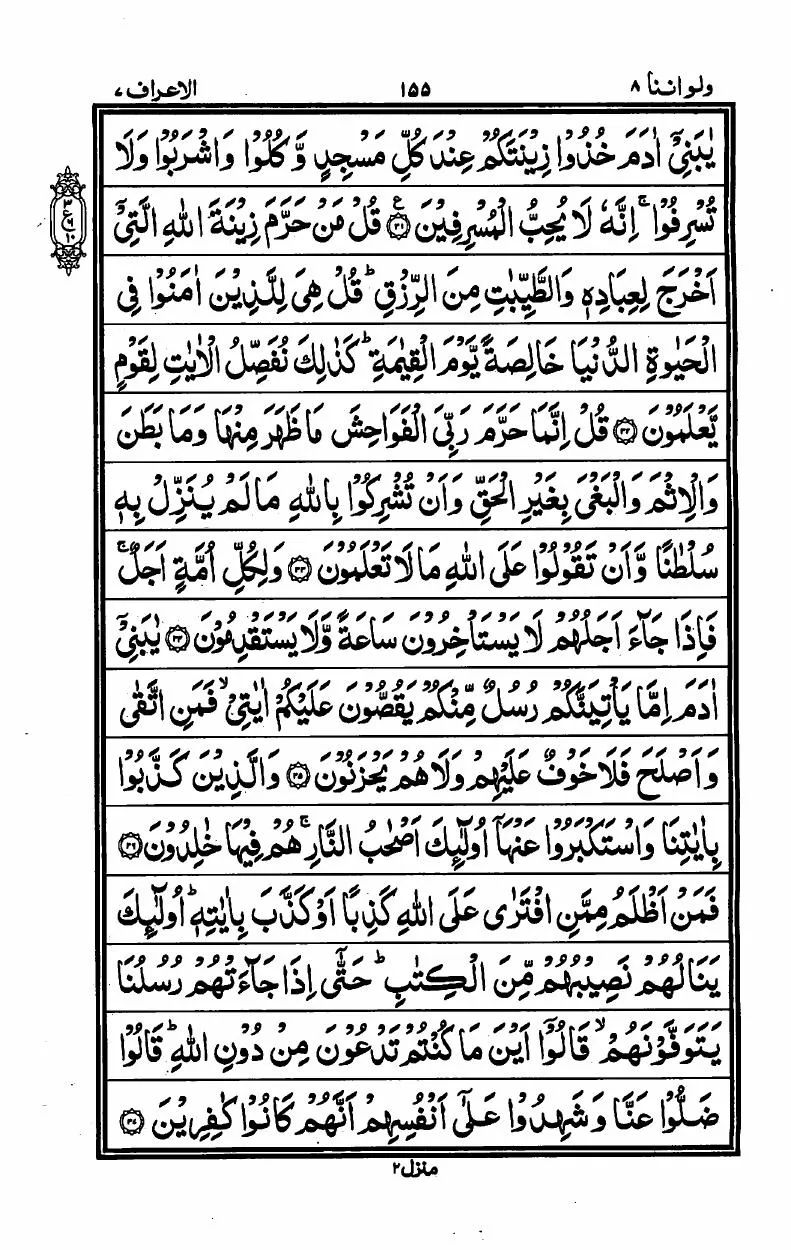 ولو اننا ۸
۱۵۵
الاعراف ۷
یٰبَنِیْۤ اٰدَمَ خُذُوْا زِیْنَتَكُمْ عِنْدَ كُلِّ مَسْجِدٍ وَّ كُلُوْا وَاشْرَبُوْا وَلَا
تُسْرِفُوْا ۚ اِنَّهٗ لَا یُحِبُّ الْمُسْرِفِیْنَ ۝۳۱ ع قُلْ مَنْ حَرَّمَ زِیْنَةَ اللّٰهِ الَّتِیْۤ
اَخْرَجَ لِعِبَادِهٖ وَالطَّیِّبٰتِ مِنَ الرِّزْقِ ؕ قُلْ هِیَ لِلَّذِیْنَ اٰمَنُوْا فِی
الْحَیٰوةِ الدُّنْیَا خَالِصَةً یَّوْمَ الْقِیٰمَةِ ؕ كَذٰلِكَ نُفَصِّلُ الْاٰیٰتِ لِقَوْمٍ
یَّعْلَمُوْنَ ۝۳۲ قُلْ اِنَّمَا حَرَّمَ رَبِّیَ الْفَوَاحِشَ مَا ظَهَرَ مِنْهَا وَمَا بَطَنَ
وَالْاِثْمَ وَالْبَغْیَ بِغَیْرِ الْحَقِّ وَاَنْ تُشْرِكُوْا بِاللّٰهِ مَا لَمْ یُنَزِّلْ بِهٖ
سُلْطٰنًا وَّاَنْ تَقُوْلُوْا عَلَی اللّٰهِ مَا لَا تَعْلَمُوْنَ ۝۳۳ وَلِكُلِّ اُمَّةٍ اَجَلٌ ۚ
فَاِذَا جَآءَ اَجَلُهُمْ لَا یَسْتَاْخِرُوْنَ سَاعَةً وَّلَا یَسْتَقْدِمُوْنَ ۝۳۴ یٰبَنِیْۤ
اٰدَمَ اِمَّا یَاْتِیَنَّكُمْ رُسُلٌ مِّنْكُمْ یَقُصُّوْنَ عَلَیْكُمْ اٰیٰتِیْ ۙ فَمَنِ اتَّقٰی
وَاَصْلَحَ فَلَا خَوْفٌ عَلَیْهِمْ وَلَا هُمْ یَحْزَنُوْنَ ۝۳۵ وَالَّذِیْنَ كَذَّبُوْا
بِاٰیٰتِنَا وَاسْتَكْبَرُوْا عَنْهَاۤ اُولٰٓئِكَ اَصْحٰبُ النَّارِ ۚ هُمْ فِیْهَا خٰلِدُوْنَ ۝۳۶
فَمَنْ اَظْلَمُ مِمَّنِ افْتَرٰی عَلَی اللّٰهِ كَذِبًا اَوْ كَذَّبَ بِاٰیٰتِهٖ ؕ اُولٰٓئِكَ
یَنَالُهُمْ نَصِیْبُهُمْ مِّنَ الْكِتٰبِ ؕ حَتّٰۤی اِذَا جَآءَتْهُمْ رُسُلُنَا
یَتَوَفَّوْنَهُمْ ۙ قَالُوْۤا اَیْنَ مَا كُنْتُمْ تَدْعُوْنَ مِنْ دُوْنِ اللّٰهِ ؕ قَالُوْا
ضَلُّوْا عَنَّا وَ شَهِدُوْا عَلٰۤی اَنْفُسِهِمْ اَنَّهُمْ كَانُوْا كٰفِرِیْنَ ۝۳۷
منزل۲